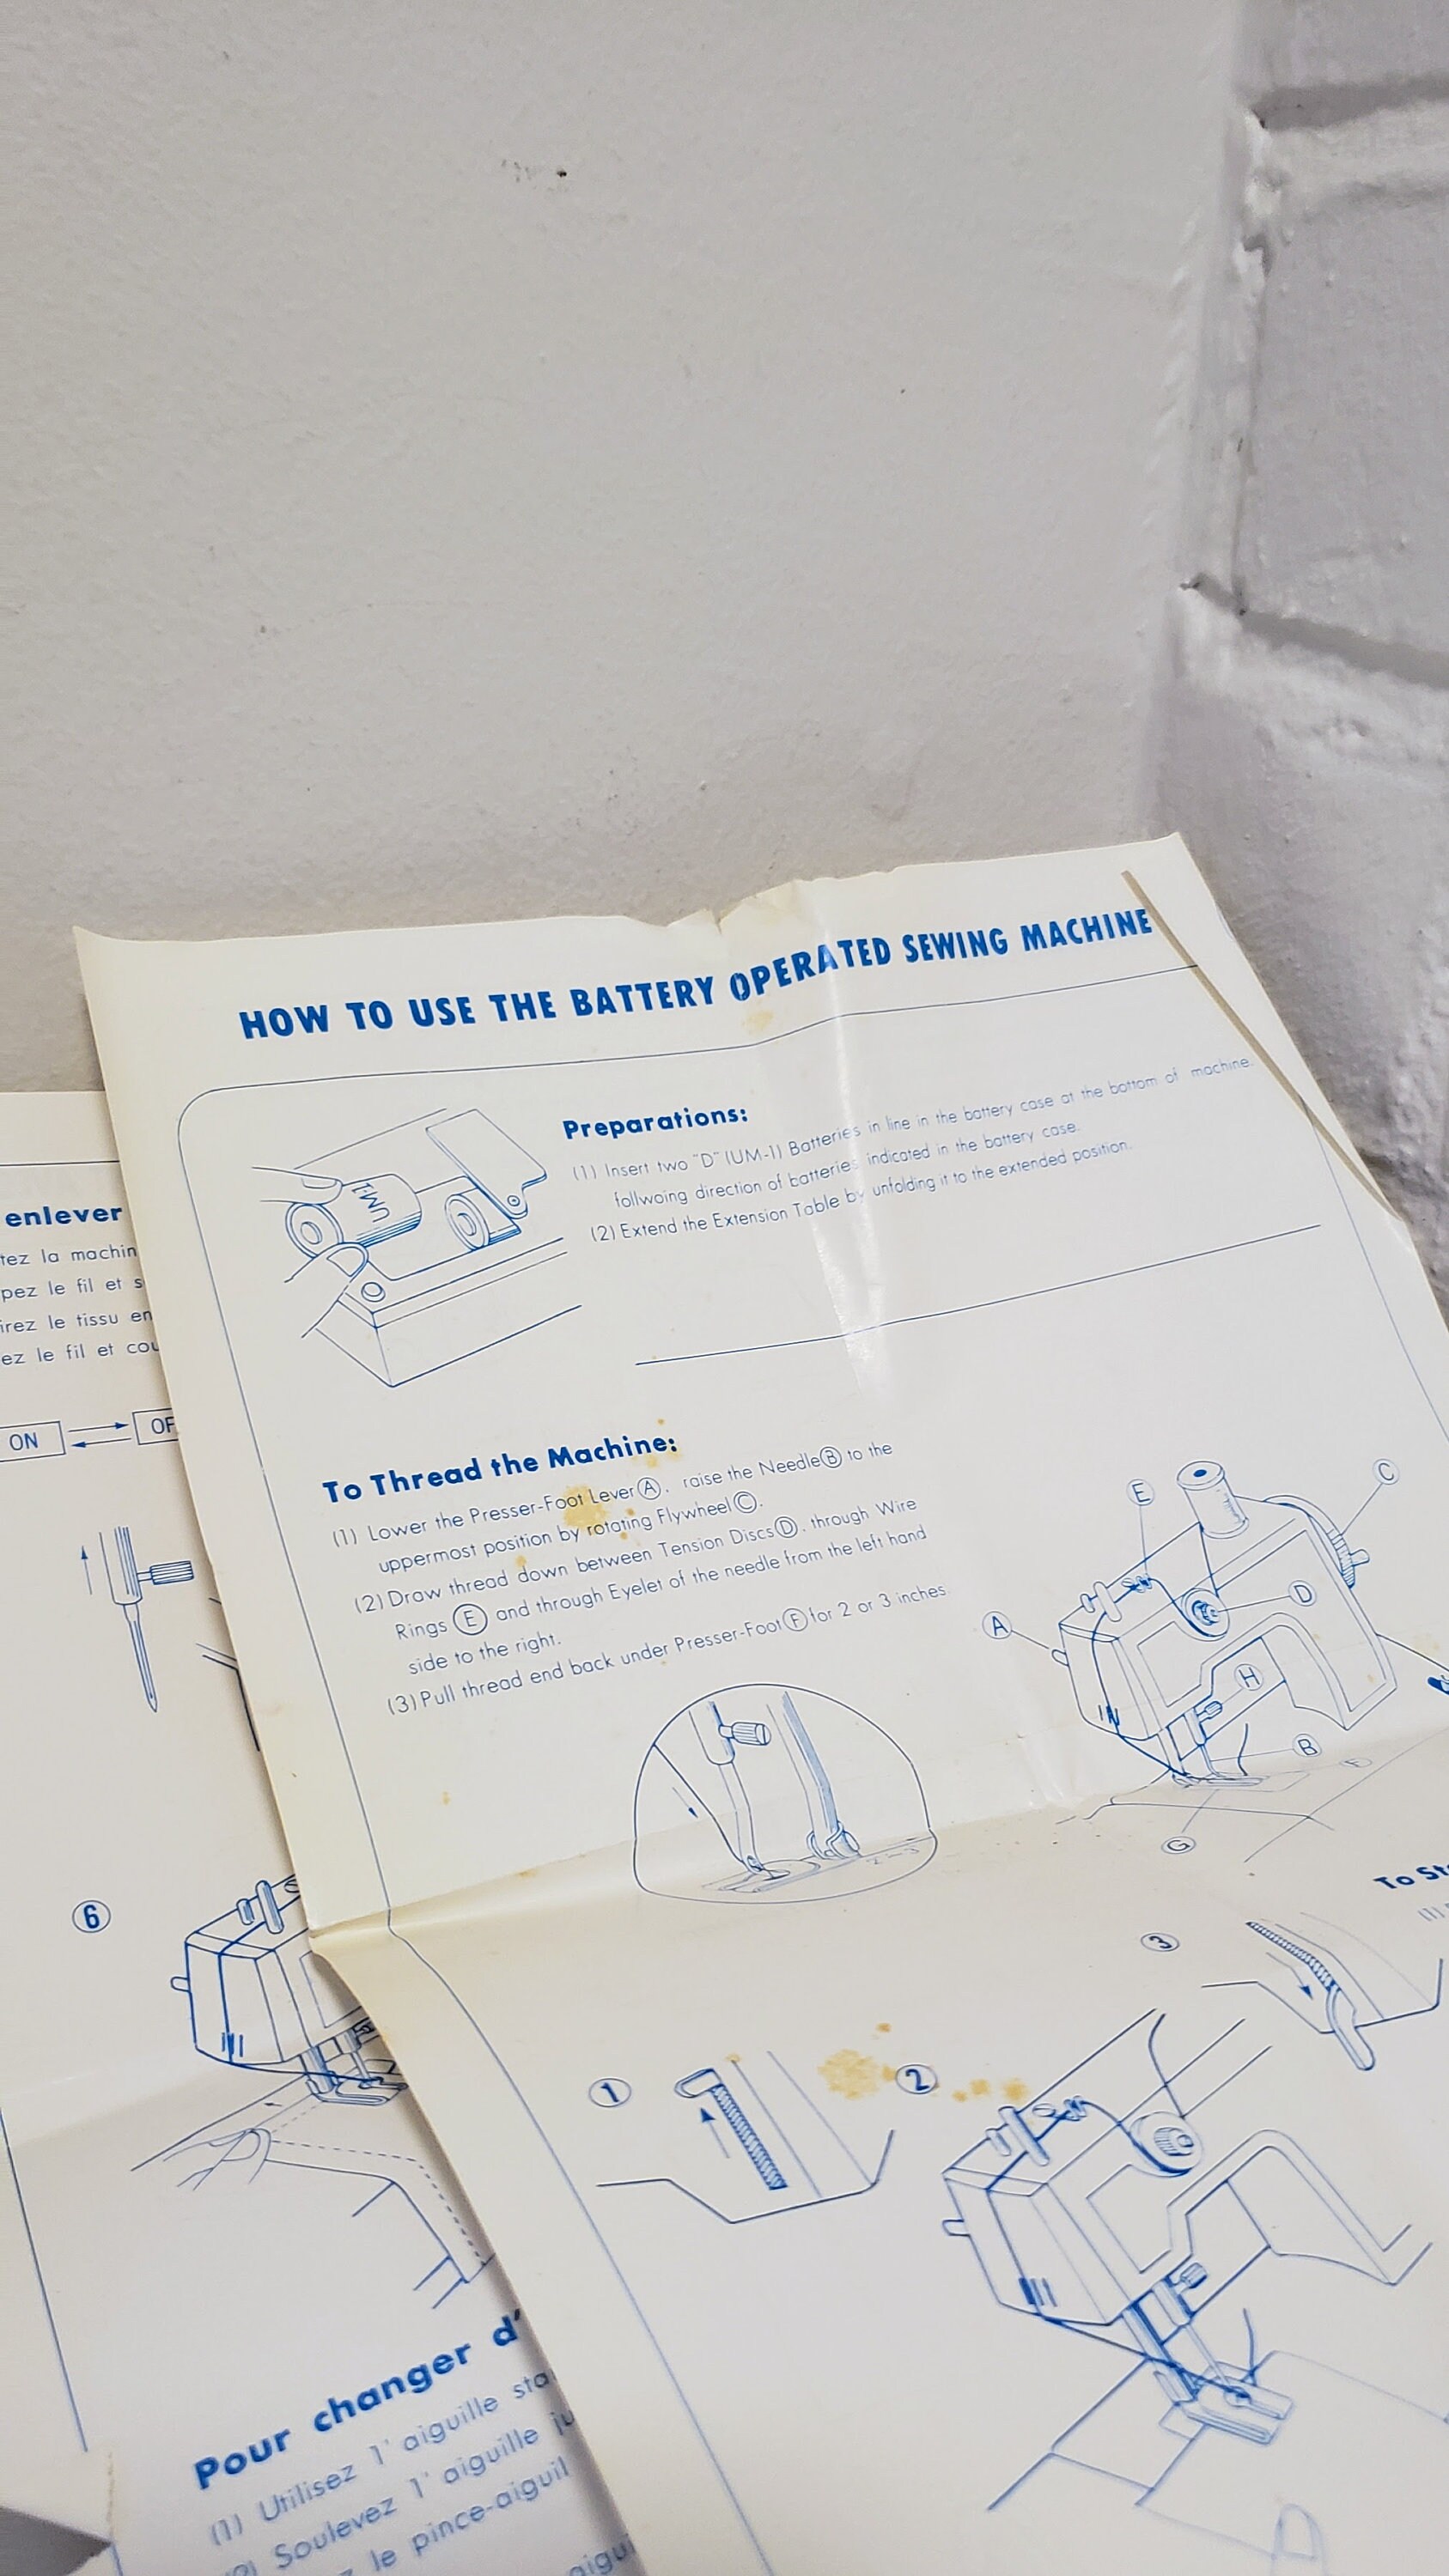 HOW TO USE THE BATTERY OPERATED SEWING MACHINE
Preparations:
(1) Insert two "D" (UM-1) Batteries in line in the battery case at the bottom of machine.
follwoing direction of batteries indicated in the battery case.
(2) Extend the Extension Table by unfolding it to the extended position.
UM1
To Thread the Machine:
(1) Lower the Presser-Foot Lever Ⓐ, raise the Needle Ⓑ to the
uppermost position by rotating Flywheel Ⓒ.
(2) Draw thread down between Tension Discs Ⓓ, through Wire
Rings Ⓔ and through Eyelet of the needle from the left hand
side to the right.
(3) Pull thread end back under Presser-Foot Ⓕ for 2 or 3 inches
Ⓔ
Ⓒ
Ⓓ
Ⓐ
Ⓗ
Ⓑ
Ⓕ
Ⓖ
2-3
To
③
①
②
enlever
tez la machin
pez le fil et s
irez le tissu en
ez le fil et cou
ON
OF
⑥
Pour changer d'
(1) Utilisez 1' aiguille sta
Soulevez 1' aiguille
le pince-aiguil
aigui